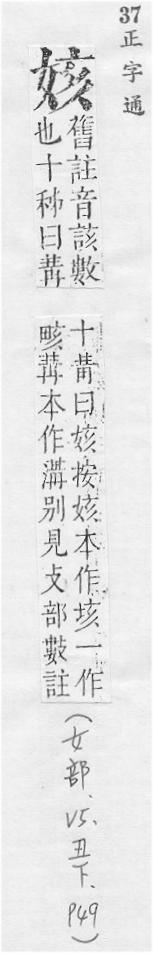 37正字通
姟
舊註音該數
也十秭日冓
十冓曰姟按姟本作垓一作
畡冓本作溝別見攴部數註
（女部、V5、丑下、P49）